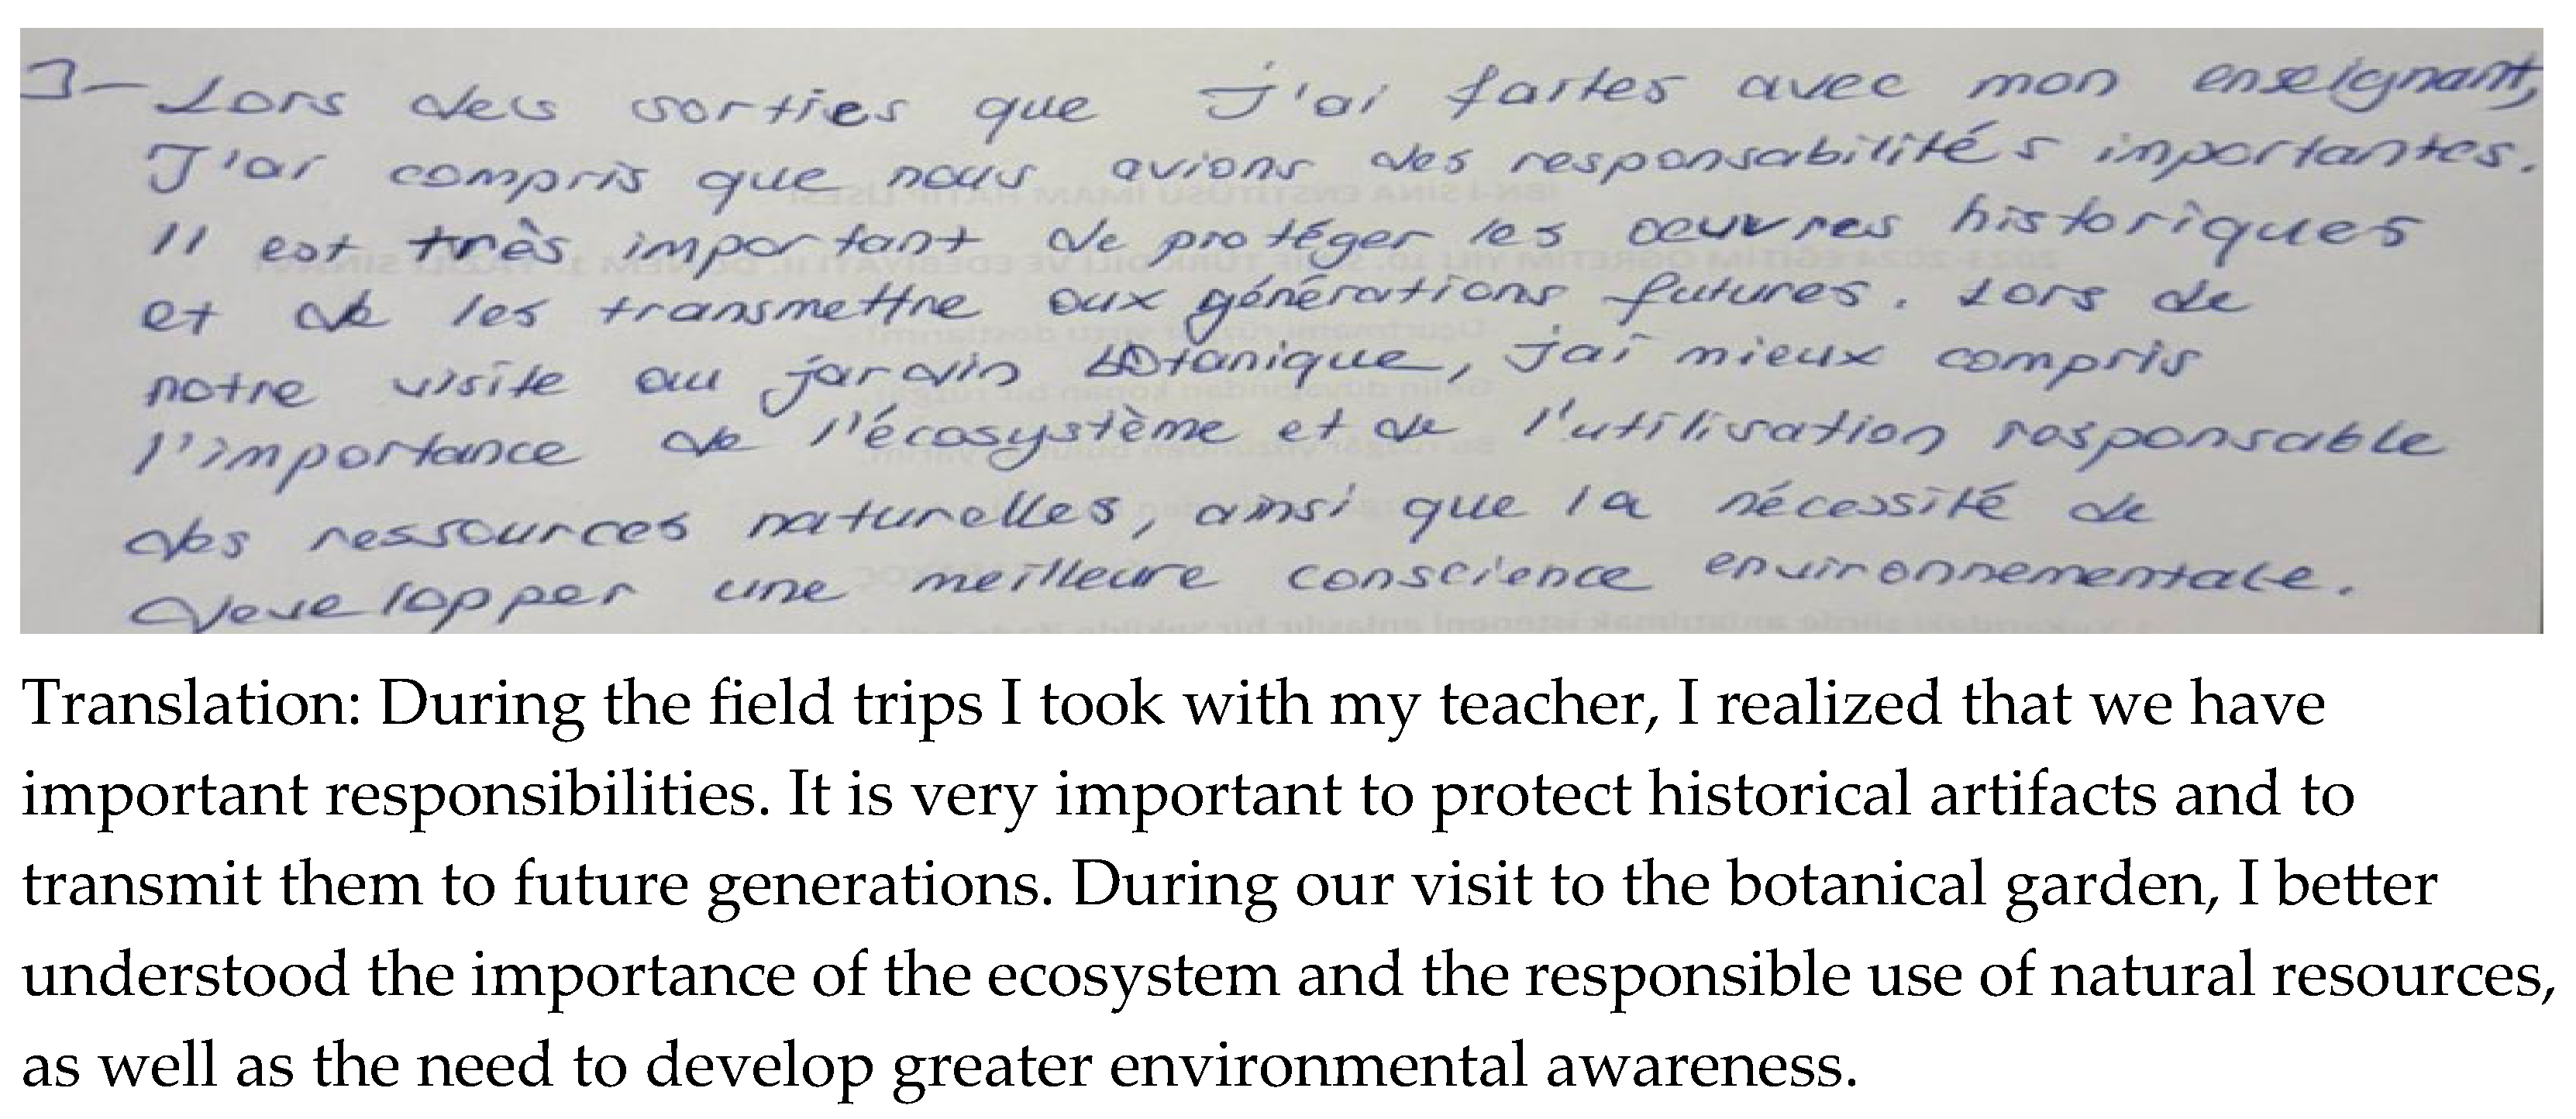 3- Lors des sorties que J'ai faites avec mon enseignant,
J'ai compris que nous avions des responsabilités importantes.
Il est très important de protéger les œuvres historiques
et de les transmettre aux générations futures. Lors de
notre visite au jardin botanique, j'ai mieux compris
l'importance de l'écosystème et de l'utilisation responsable
des ressources naturelles, ainsi que la nécessité de
developper une meilleure conscience environnementale.
Translation: During the field trips I took with my teacher, I realized that we have
important responsibilities. It is very important to protect historical artifacts and to
transmit them to future generations. During our visit to the botanical garden, I better
understood the importance of the ecosystem and the responsible use of natural resources,
as well as the need to develop greater environmental awareness.